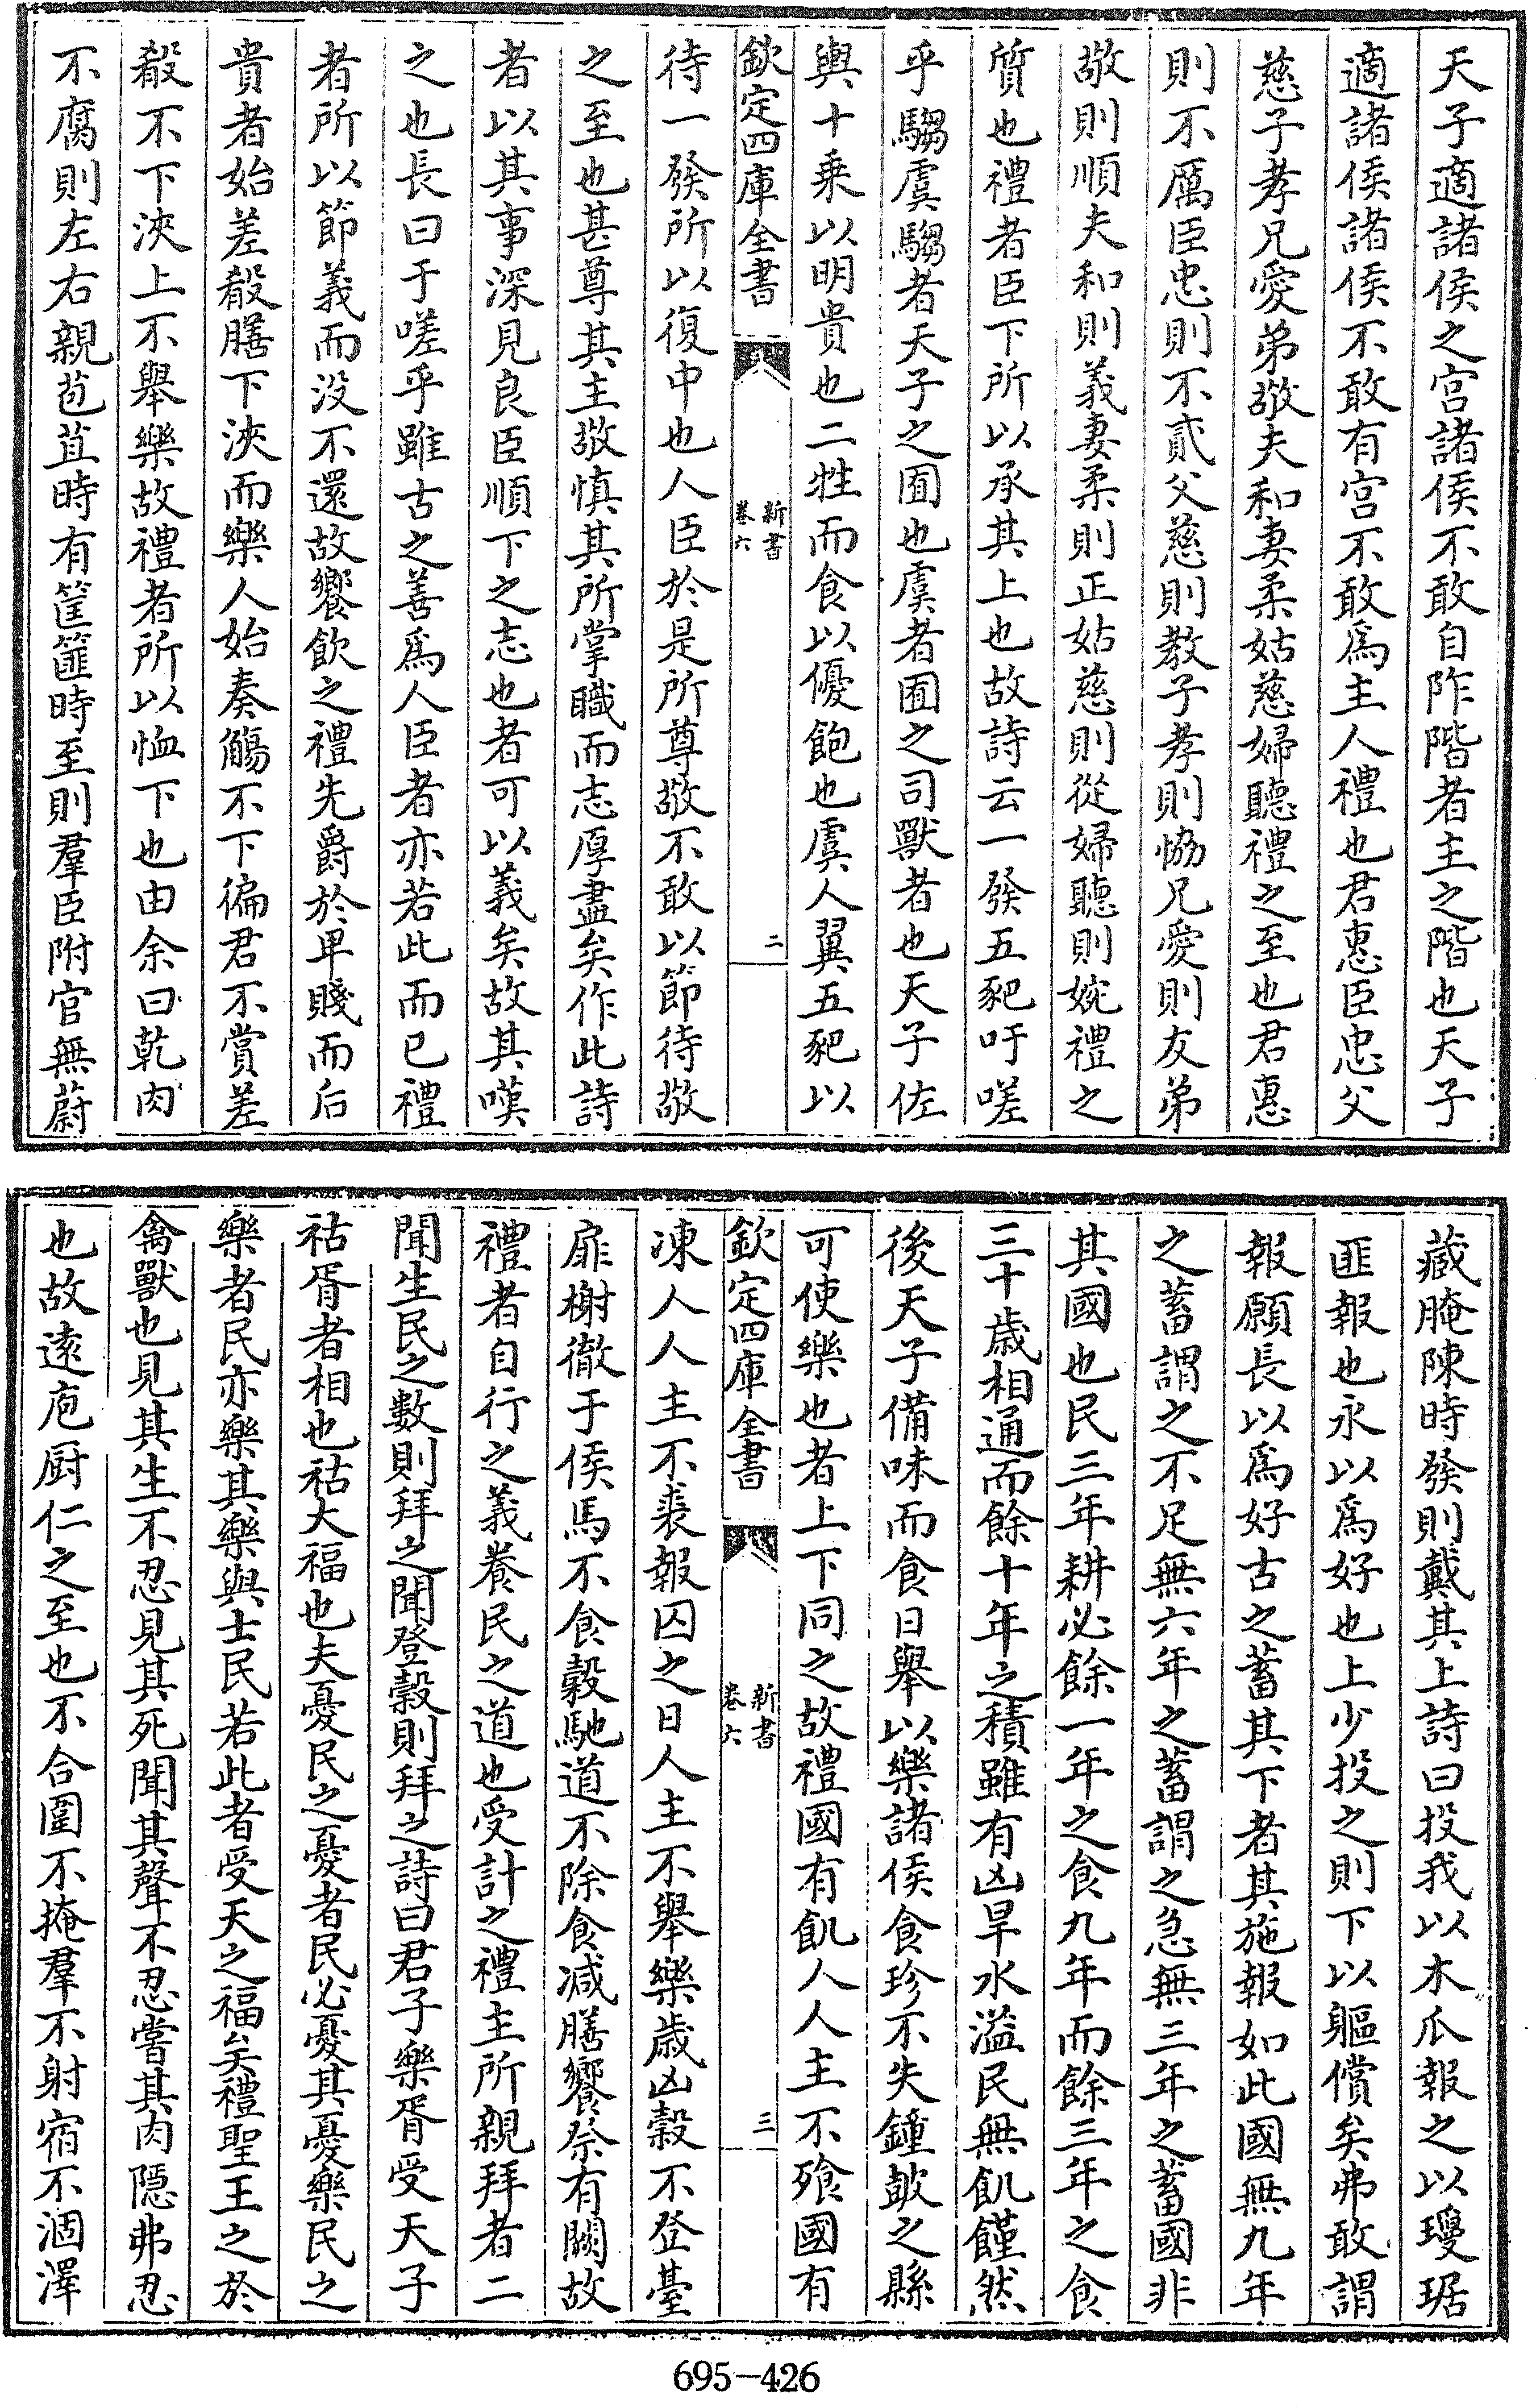 天子適諸侯之宫諸侯不敢自阼階者主之階也天子
適諸侯諸侯不敢有宫不敢爲主人禮也君惠臣忠父
慈子孝兄愛弟敬夫和妻柔姑慈婦聽禮之至也君惠
則不厲臣忠則不貳父慈則教子孝則恊兄愛則友弟
敬則順夫和則義妻柔則正姑慈則從婦聽則婉禮之
質也禮者臣下所以承其上也故詩云一發五豝吁嗟
乎騶虞騶者天子之囿也虞者囿之司獸者也天子佐
輿十乗以明貴也二牲而食以優飽也虞人翼五豝以
欽定四庫全書
新書
卷六
二
待一發所以復中也人臣於是所尊敬不敢以節待敬
之至也甚尊其主敬慎其所掌職而志厚盡矣作此詩
者以其事深見良臣順下之志也者可以義矣故其嘆
之也長曰于嗟乎雖古之善爲人臣者亦若此而已禮
者所以節義而没不還故饗飲之禮先爵於卑賤而后
貴者始差殽膳下浹而樂人始奏觴不下徧君不賞差
殽不下浹上不舉樂故禮者所以恤下也由余曰乾肉
不腐則左右親苞苴時有筐篚時至則羣臣附官無蔚
藏腌陳時發則戴其上詩曰投我以木瓜報之以瓊琚
匪報也永以爲好也上少投之則下以軀償矣弗敢謂
報願長以爲好古之蓄其下者其施報如此國無九年
之蓄謂之不足無六年之蓄謂之急無三年之蓄國非
其國也民三年耕必餘一年之食九年而餘三年之食
三十歳相通而餘十年之積雖有凶旱水溢民無飢饉然
後天子備味而食日舉以樂諸侯食珍不失鐘鼓之縣
可使樂也者上下同之故禮國有飢人人主不飱國有
欽定四庫全書
新書
卷六
三
凍人人主不裘報囚之日人主不舉樂歳凶穀不登臺
扉榭徹于侯馬不食穀馳道不除食減膳饗祭有闕故
禮者自行之義養民之道也受計之禮主所親拜者二
聞生民之數則拜之聞登穀則拜之詩曰君子樂胥受天子
祜胥者相也祜大福也夫憂民之憂者民必憂其憂樂民之
樂者民亦樂其樂與士民若此者受天之福矣禮聖王之於
禽獸也見其生不忍見其死聞其聲不忍嘗其肉隱弗忍
也故逺庖厨仁之至也不合圍不掩羣不射宿不涸澤
695-426